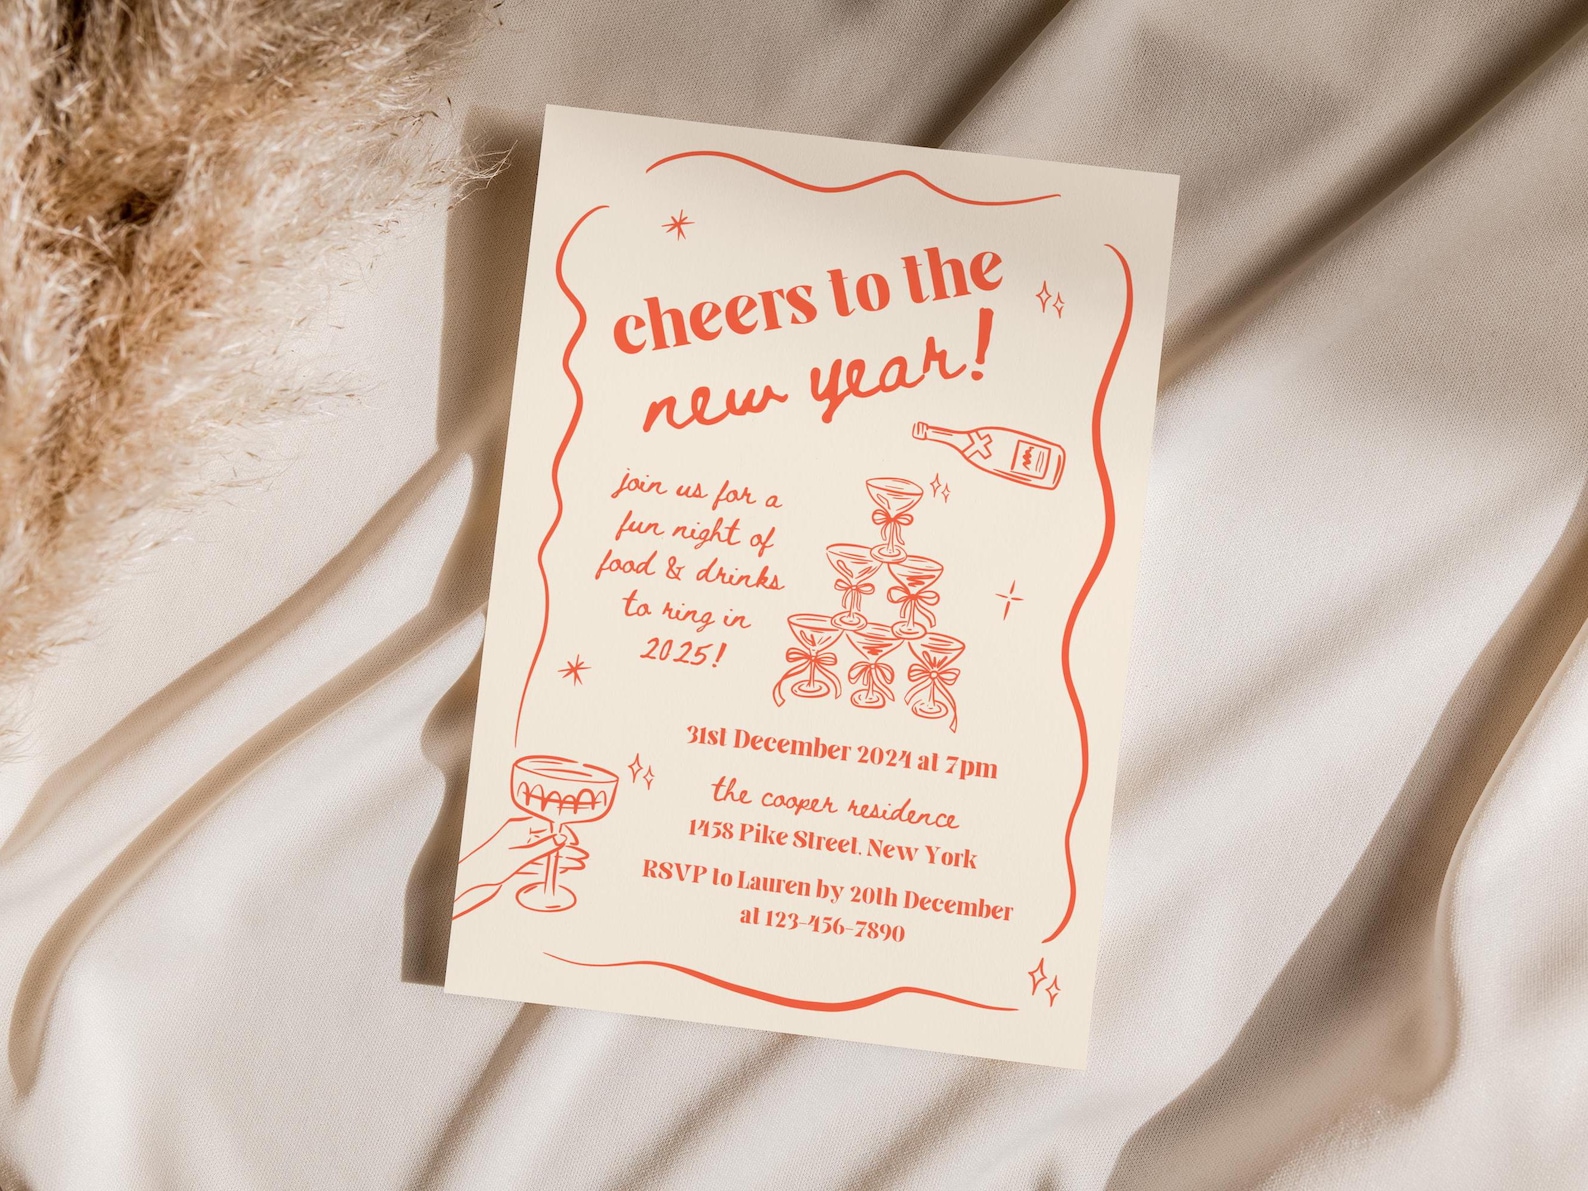 cheers to the
new year!
join us for a
fun night of
food & drinks
to ring in
2025!
31st December 2024 at 7pm
the cooper residence
1458 Pike Street, New York
RSVP to Lauren by 20th December
at 123-456-7890